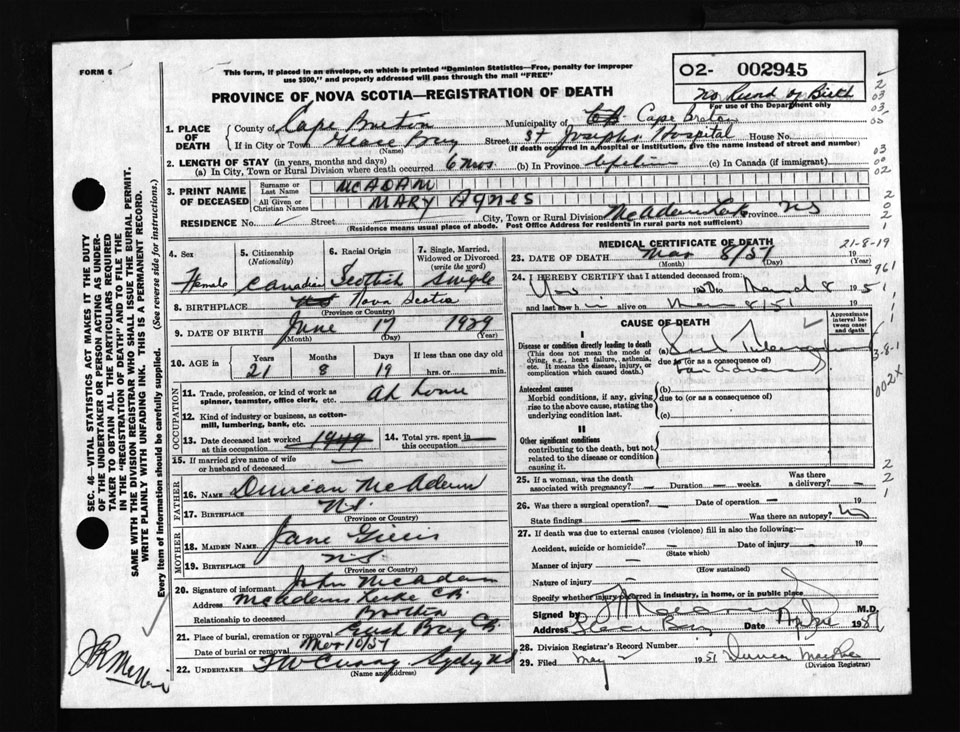 FORM 6
This form, if placed in an envelope, on which is printed "Dominion Statistics—Free, penalty for improper
use $300," and properly addressed will pass through the mail "FREE"
02- 002945
No Record of Birth
For use of the Department only
PROVINCE OF NOVA SCOTIA—REGISTRATION OF DEATH
1. PLACE OF DEATH
County of Cape Breton Municipality of Cape Breton
If in City or Town Glace Bay Street St Josephs Hospital House No.
(Name) (If death occurred in a hospital or institution, give the name instead of street and number)
2. LENGTH OF STAY (in years, months and days)
(a) In City, Town or Rural Division where death occurred 6 mos. (b) In Province Lifetime (c) In Canada (if immigrant)
3. PRINT NAME OF DECEASED
Surname or Last Name MCADAM
All Given or Christian Names MARY AGNES
RESIDENCE No. Street City, Town or Rural Division McAdam Lake Province NS
(Residence means usual place of abode. Post Office Address for residents in rural parts not sufficient)
4. Sex Female
5. Citizenship (Nationality) Canadian
6. Racial Origin Scottish
7. Single, Married, Widowed or Divorced (write the word) Single
8. BIRTHPLACE Nova Scotia
(Province or Country)
9. DATE OF BIRTH June 17 1929
(Month) (Day) (Year)
10. AGE in Years Months Days If less than one day old
21 8 19 hrs. or min.
OCCUPATION
11. Trade, profession, or kind of work as spinner, teamster, office clerk, etc. at home
12. Kind of industry or business, as cotton-mill, lumbering, bank, etc.
13. Date deceased last worked at this occupation 1949
14. Total yrs. spent in this occupation
15. If married give name of wife or husband of deceased
FATHER
16. NAME Duncan McAdam
17. BIRTHPLACE N.S.
(Province or Country)
MOTHER
18. MAIDEN NAME Jane Gillis
19. BIRTHPLACE N.S.
(Province or Country)
20. Signature of informant John McAdam
Address McAdams Lake CB
Relationship to deceased Brother
21. Place of burial, cremation or removal Bay CB
Date of burial or removal Mar 10/51
22. UNDERTAKER Sydney NS
(Name and address)
MEDICAL CERTIFICATE OF DEATH
21-8-19
23. DATE OF DEATH Mar 8/51 19
(Month) (Day) (Year)
24. I HEREBY CERTIFY that I attended deceased from:
Nov 1950 to March 8 1951
and last saw h alive on Mar 8/51 19
CAUSE OF DEATH
Approximate interval between onset and death
I
Disease or condition directly leading to death
(This does not mean the mode of dying, e.g., heart failure, asthenia, etc. It means the disease, injury, or complication which caused death.)
(a)
due to (or as a consequence of)
Antecedent causes
Morbid conditions, if any, giving rise to the above cause, stating the underlying condition last.
(b)
due to (or as a consequence of)
(c)
II
Other significant conditions
contributing to the death, but not related to the disease or condition causing it.
25. If a woman, was the death associated with pregnancy? Duration weeks. Was there a delivery?
26. Was there a surgical operation? Date of operation 19
State findings Was there an autopsy? No
27. If death was due to external causes (violence) fill in also the following:—
Accident, suicide or homicide? Date of injury 19
(State which)
Manner of injury
(How sustained)
Nature of injury
Specify whether injury occurred in industry, in home, or in public place
Signed by M.D.
Address Glace Bay Date 1951
28. Division Registrar's Record Number
29. Filed May 2 1951 Duncan
(Division Registrar)
SEC. 46—VITAL STATISTICS ACT MAKES IT THE DUTY
OF THE UNDERTAKER OR PERSON ACTING AS UNDER-
TAKER TO OBTAIN ALL THE PARTICULARS REQUIRED
IN THE "REGISTRATION OF DEATH" AND TO FILE THE
SAME WITH THE DIVISION REGISTRAR WHO SHALL ISSUE THE BURIAL PERMIT.
WRITE PLAINLY WITH UNFADING INK. THIS IS A PERMANENT RECORD.
Every item of information should be carefully supplied. (See reverse side for instructions.)